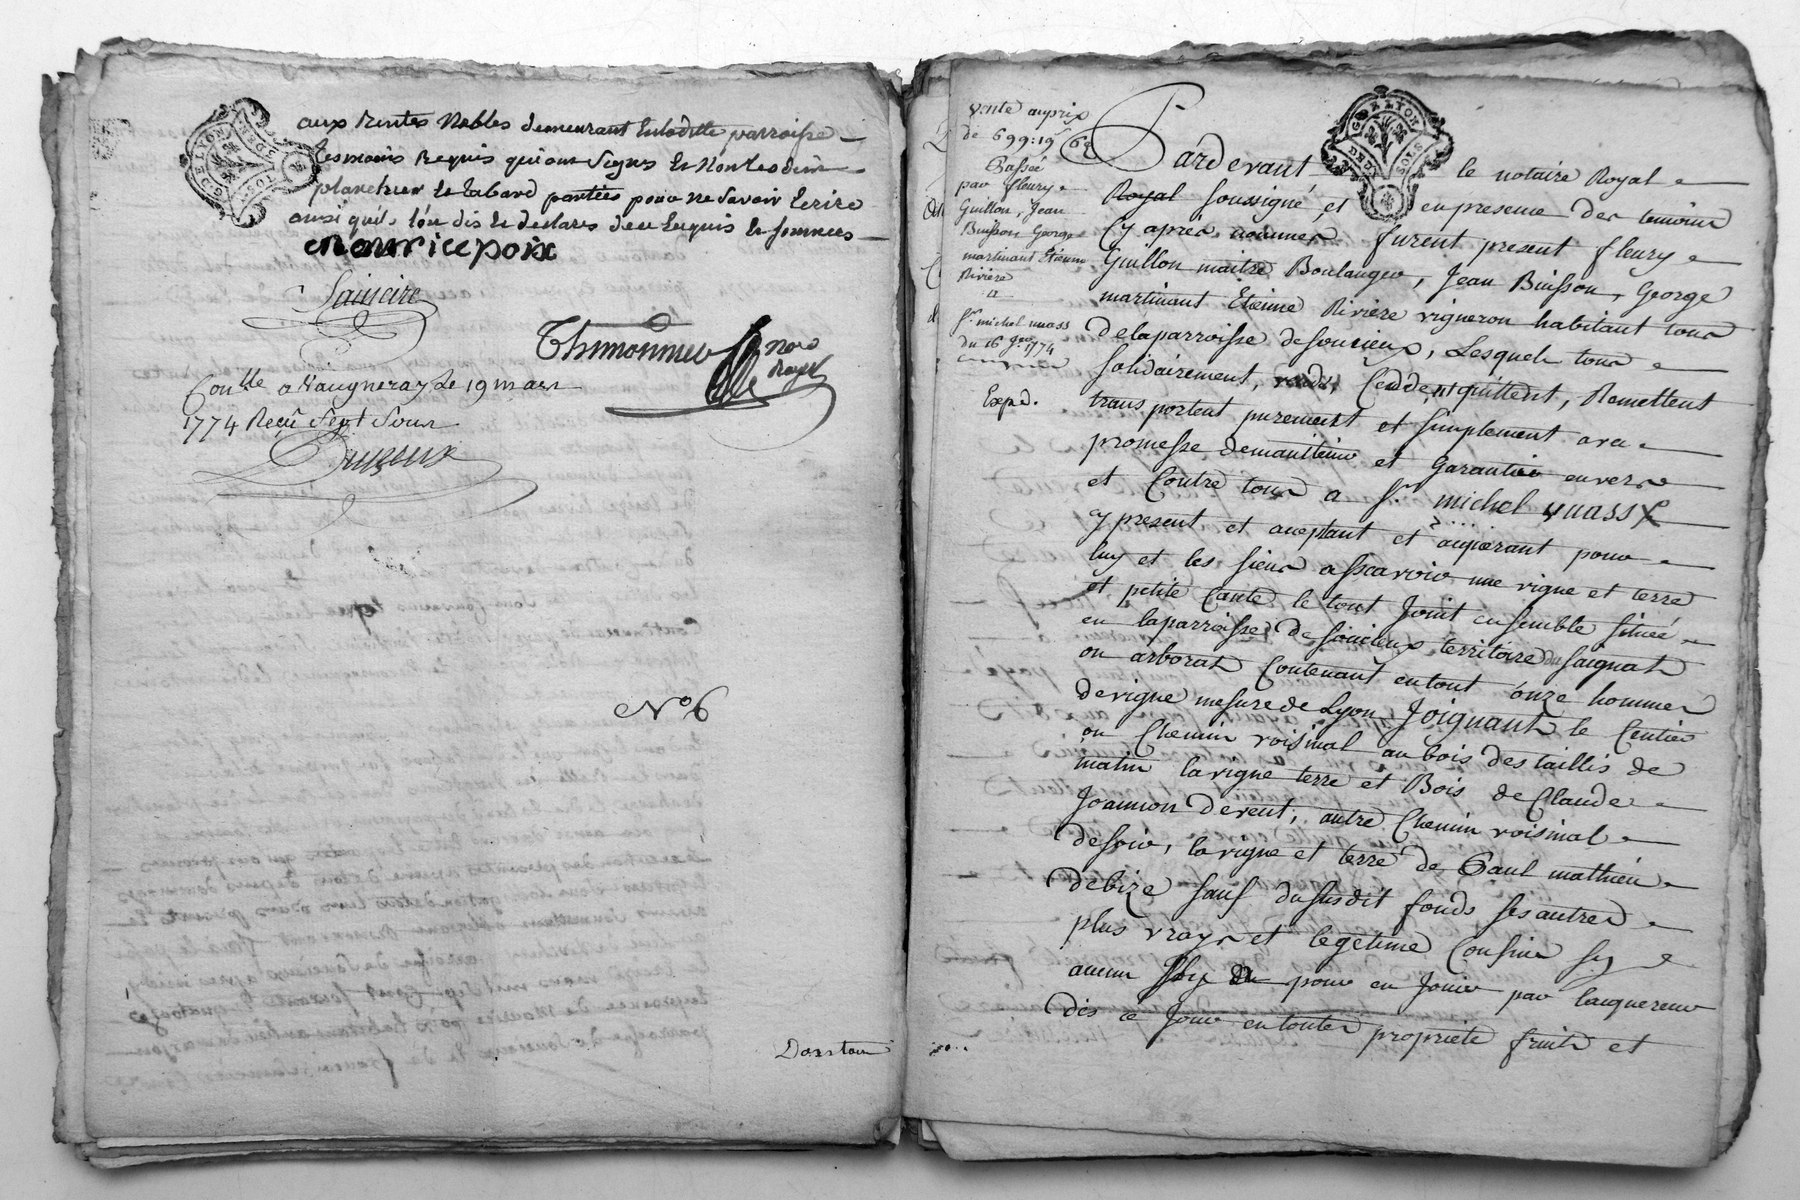 aux Rentes Nobles demeurant En laditte parroisse
temoins Requis qui ont Signés Et Non lesdits
plancher Et tabard parties pour ne Savoir Ecrire
ainsi quils l'on dis Et declarés de ce Enquis Et Sommés
mauricepoix
Thimonnier No.re Royal
Conlle a Vaugneray Le 19 mars
1774 Reçu Sept Sous
No 6
GDELYON
DEUX SOLS
vente au prix
de 699:19s
Passée
par fleury
Guillon, Jean
Buisson George
martinant Etienne
Rivière
a
Sr michel
du 16 1774
Expé.
GDELYON
DEUX SOLS
Pardevant le notaire Royal
Royal soussigné, et en presence des temoins
Cy après nommés furent present fleury
Guillon maitre Boulanger, Jean Buisson, George
martinant Etienne Rivière vigneron habitant tous
de la parroisse de soucieux, Lesquels tous
solidairement, vendent, Ceddent, quittent, Remettent
transportent purement et simplement avec
promesse de maintenir et garantir envers
et Contre tous a Sr michel
cy present et aceptant et aquerant pour
luy et les siens assçavoir une vigne et terre
et petite le tout Joint ensemble située
en la parroisse de soucieux territoire du saignat
ou arborat Contenant en tout onze hommés
de vigne mesure de Lyon, Joignant le Centier
ou Chemin voisinal au bois des taillis de
matin la vigne terre et Bois de Claude
Joannon de vent, autre Chemin voisinal
de soir, la vigne et terre de Paul mathieu
de bize sauf du susdit fonds ses autres
plus vrays et legetime Confins sy
aucun pour en Jouir par laquereur
dès ce Jour en toute propriete fruits et